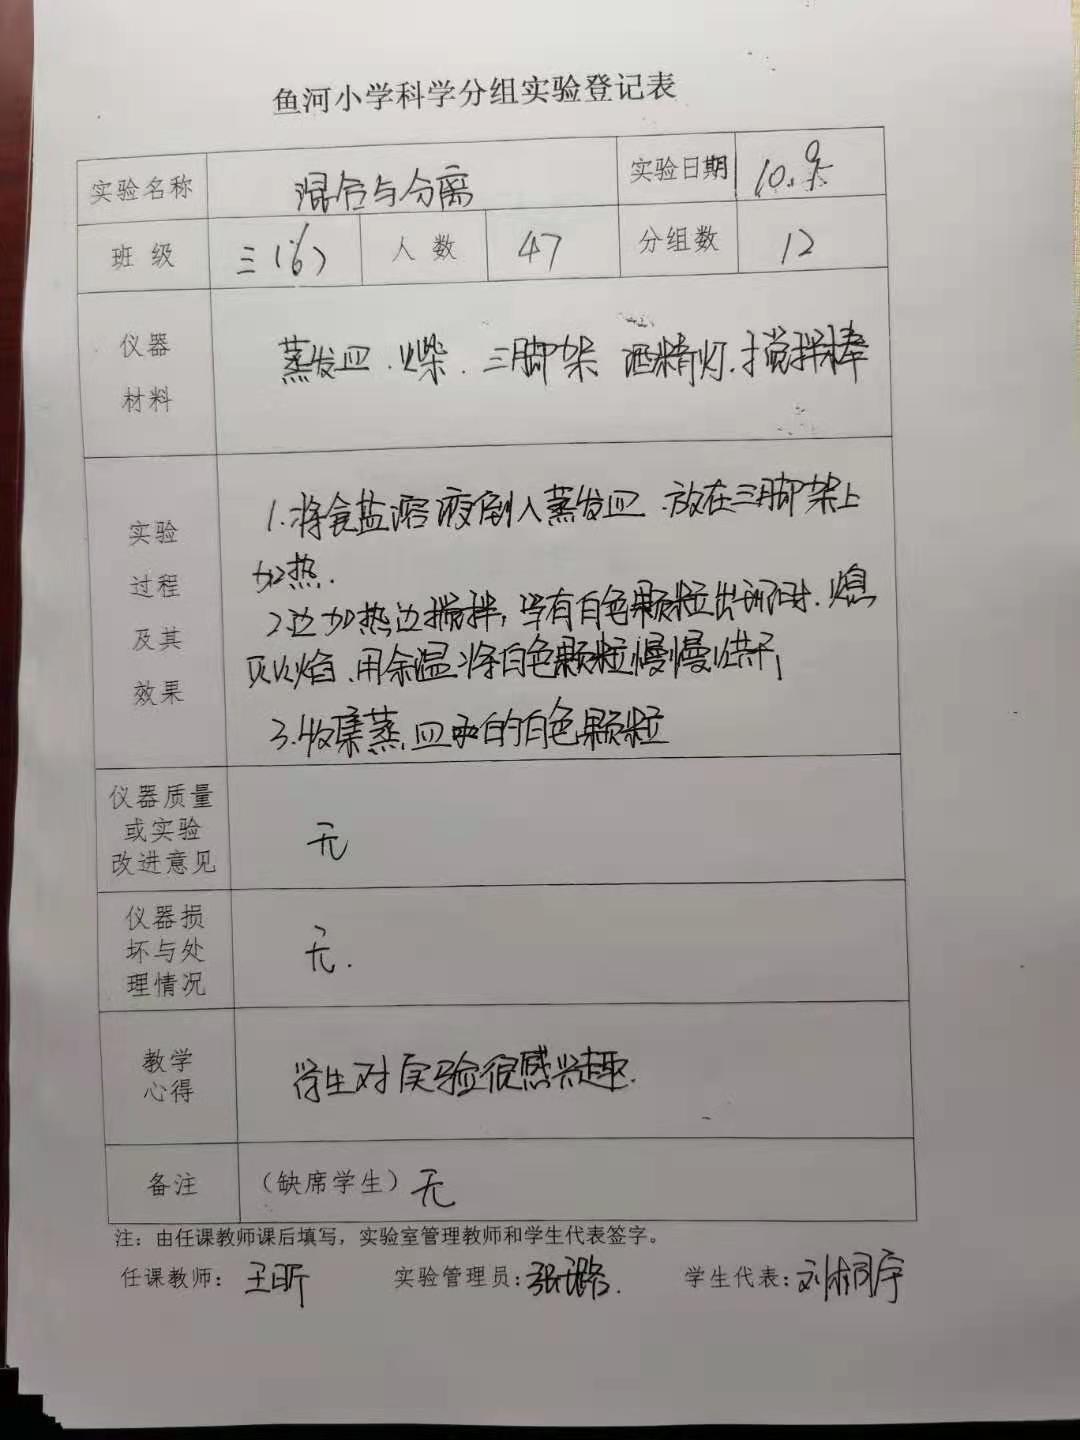 鱼河小学科学分组实验登记表
实验名称 混合与分离 实验日期 10.9
班 级 三(6) 人 数 47 分组数 12
仪器
材料
蒸发皿.火柴.三脚架 酒精灯.搅拌棒
实验
过程
及其
效果
1.将食盐溶液倒入蒸发皿.放在三脚架上
加热.
2边加热边搅拌,当有白色颗粒出现时.熄
灭火焰.用余温将白色颗粒慢慢烘干,
3.收集蒸皿中的白色颗粒
仪器质量
或实验
改进意见
无
仪器损
坏与处
理情况
无.
教学
心得
学生对实验很感兴趣.
备注 (缺席学生) 无
注：由任课教师课后填写，实验室管理教师和学生代表签字。
任课教师：王昕 实验管理员：张璐. 学生代表：刘桐宇